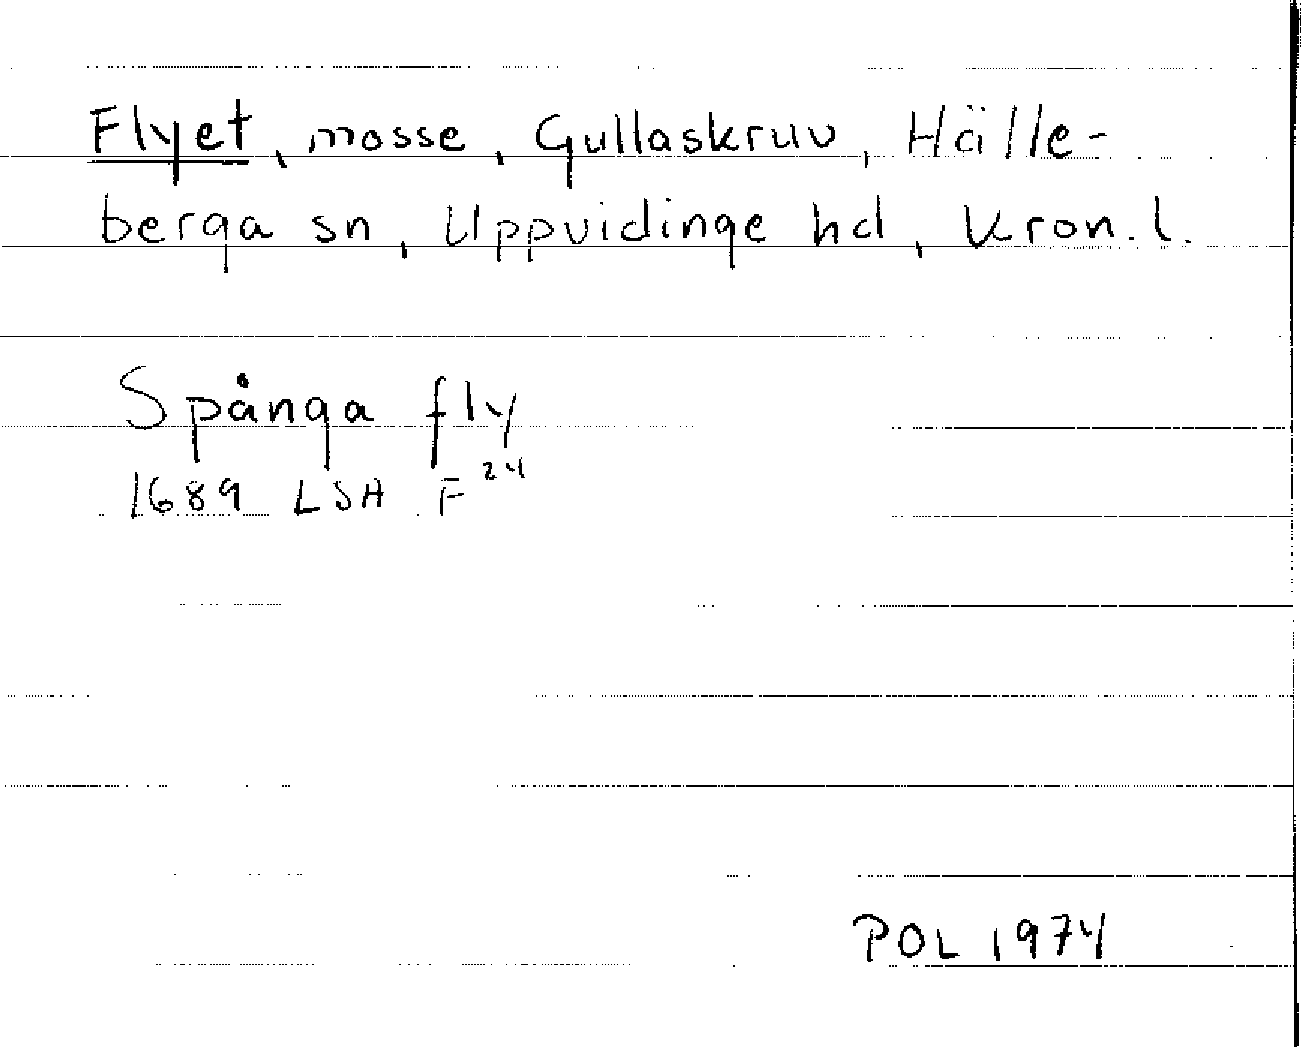 Flyet, mosse, Gullaskruv, Hälle-
berga sn, Uppvidinge hd, Kron. l.
Spånga fly
1689 LSA F 24
POL 1974